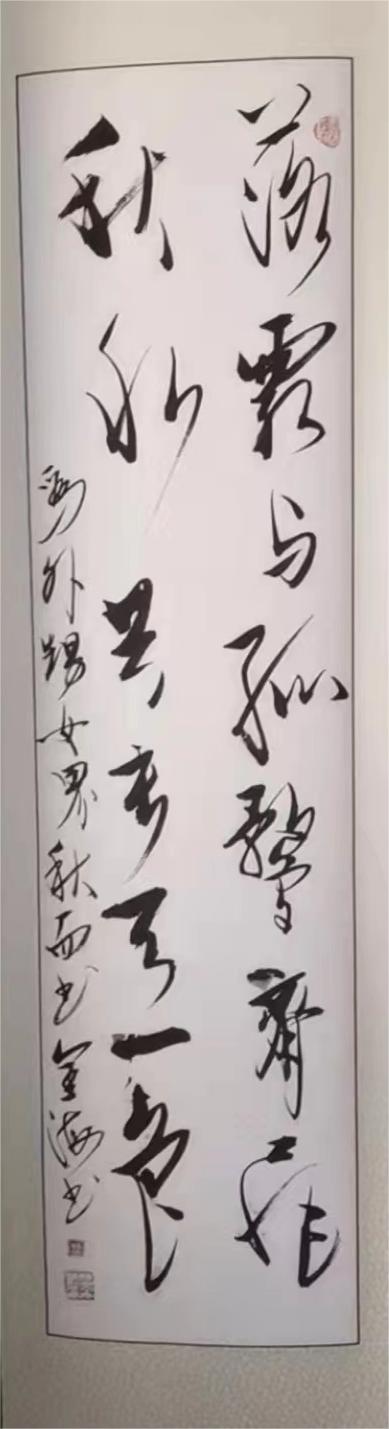 落霞与孤鹜齐飞
秋水共长天一色
外甥女 秋雨书 金海书